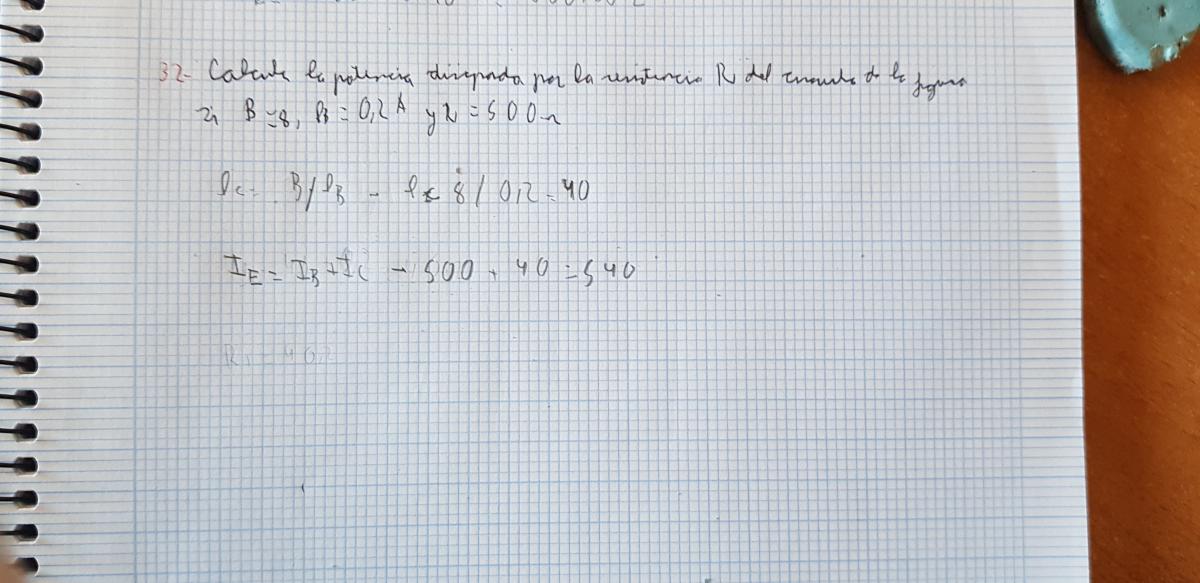 32- Calcula la potencia disipada por la resistencia R del circuito de la figura
si B = 8, IB = 0,2 A y R = 500 Ω
Ic = B/IB - Ic 8 / 0,2 = 40
IE = IB + IC - 500 + 40 = 540